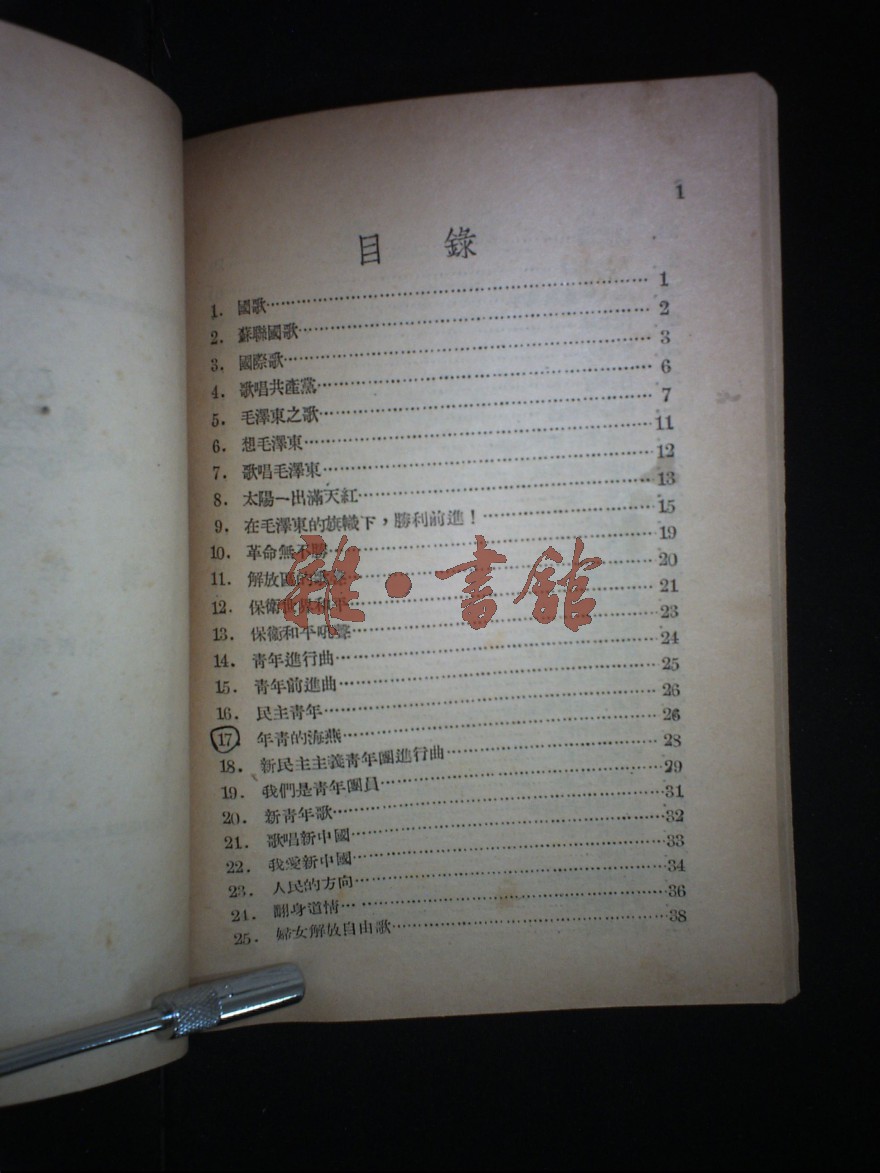 1
目 錄
1. 國歌 1
2. 蘇聯國歌 2
3. 國際歌 3
4. 歌唱共產黨 6
5. 毛澤東之歌 7
6. 想毛澤東 11
7. 歌唱毛澤東 12
8. 太陽一出滿天紅 13
9. 在毛澤東的旗幟下，勝利前進！ 15
10. 革命無不勝 19
11. 解放區的歌 20
12. 保衛世界和平 21
13. 保衛和平吼聲 23
14. 青年進行曲 24
15. 青年前進曲 25
16. 民主青年 26
17. 年青的海燕 26
18. 新民主主義青年團進行曲 28
19. 我們是青年團員 29
20. 新青年歌 31
21. 歌唱新中國 32
22. 我愛新中國 33
23. 人民的方向 34
24. 翻身道情 36
25. 婦女解放自由歌 38
雜·書館